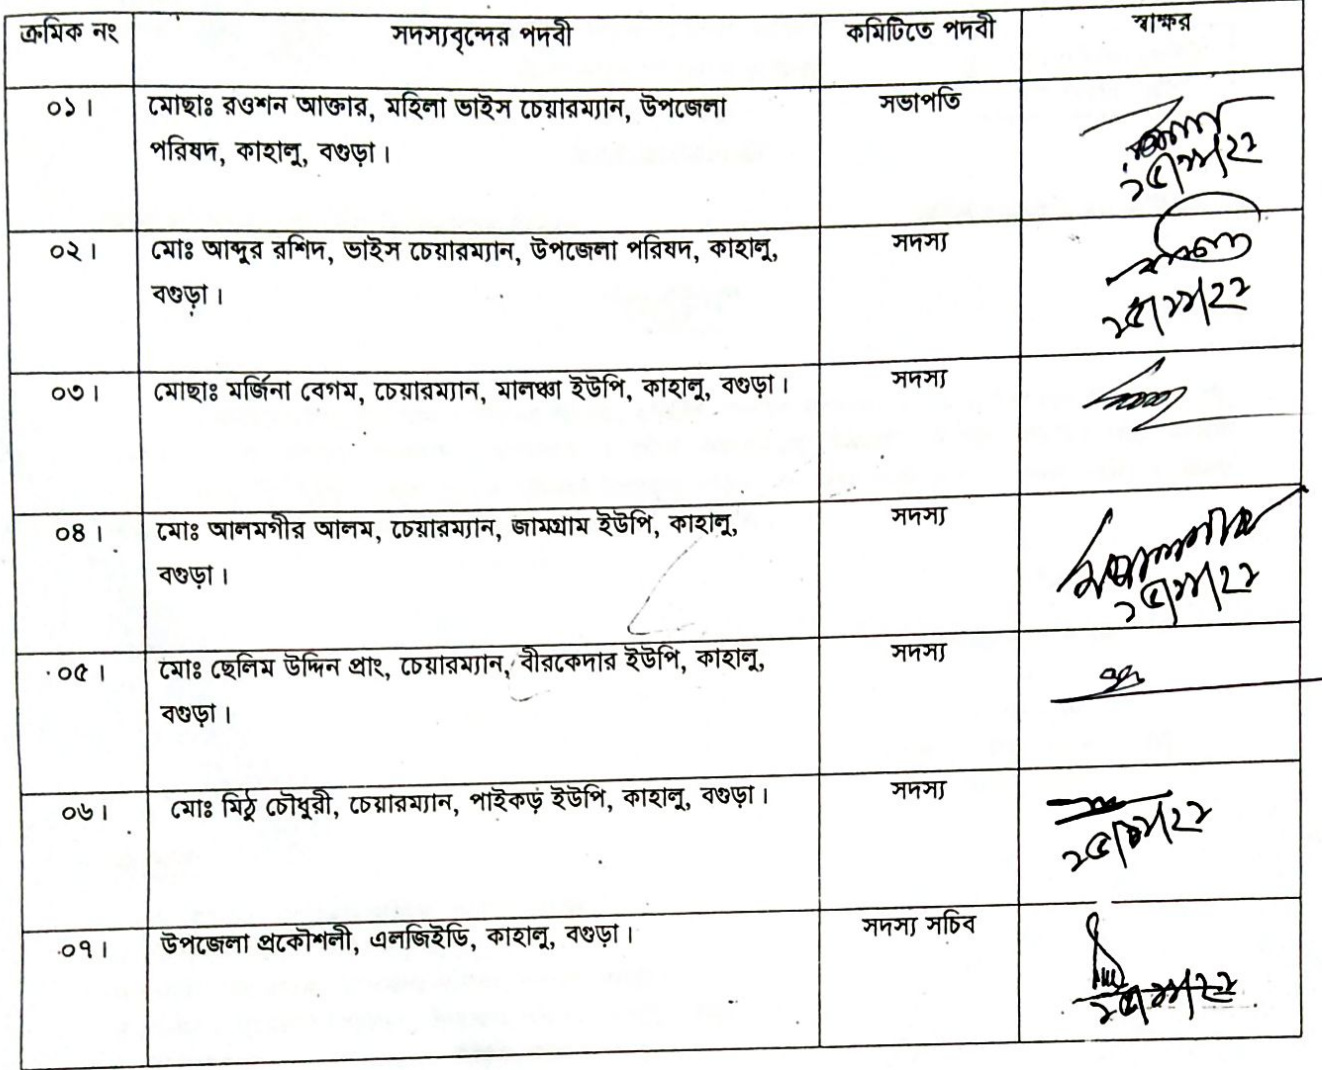 ক্রমিক নং সদস্যবৃন্দের পদবী কমিটিতে পদবী স্বাক্ষর
০১। মোছাঃ রওশন আক্তার, মহিলা ভাইস চেয়ারম্যান, উপজেলা সভাপতি
পরিষদ, কাহালু, বগুড়া।
২৫/১১/২২
০২। মোঃ আব্দুর রশিদ, ভাইস চেয়ারম্যান, উপজেলা পরিষদ, কাহালু, সদস্য
বগুড়া।
২৫/১১/২২
০৩। মোছাঃ মর্জিনা বেগম, চেয়ারম্যান, মালঞ্চা ইউপি, কাহালু, বগুড়া। সদস্য
০৪। মোঃ আলমগীর আলম, চেয়ারম্যান, জামগ্রাম ইউপি, কাহালু, সদস্য
বগুড়া।
২৫/১১/২২
০৫। মোঃ ছেলিম উদ্দিন প্রাং, চেয়ারম্যান, বীরকেদার ইউপি, কাহালু, সদস্য
বগুড়া।
০৬। মোঃ মিঠু চৌধুরী, চেয়ারম্যান, পাইকড় ইউপি, কাহালু, বগুড়া। সদস্য
২৫/১১/২২
০৭। উপজেলা প্রকৌশলী, এলজিইডি, কাহালু, বগুড়া। সদস্য সচিব
২৫/১১/২২